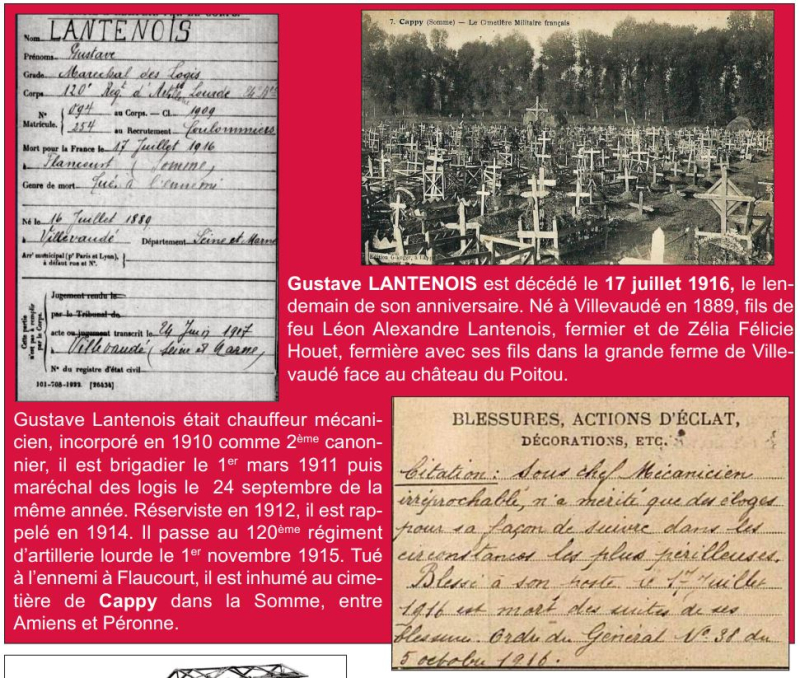 Nom LANTENOIS
Prénoms Gustave
Grade Maréchal des Logis
Corps 120e Regt d'Artie Lourde
N° Matricule. 094 au Corps. — Cl. 1909
254 au Recrutement Coulommiers
Mort pour la France le 17 Juillet 1916
à Flaucourt (Somme)
Genre de mort Tué à l'ennemi
Né le 16 Juillet 1889
à Villevaudé Département Seine et Marne
Arrt municipal (pr Paris et Lyon), à défaut rue et N°.
Cette partie n'est pas à remplir par le Corps.
Jugement rendu le
par le Tribunal de
acte ou jugement transcrit le 24 Juin 1917
à Villevaudé (Seine et Marne)
N° du registre d'état civil
101-708-1922. [26434]
7. Cappy (Somme) — Le Cimetière Militaire français
Gustave LANTENOIS est décédé le 17 juillet 1916, le len-
demain de son anniversaire. Né à Villevaudé en 1889, fils de
feu Léon Alexandre Lantenois, fermier et de Zélia Félicie
Houet, fermière avec ses fils dans la grande ferme de Ville-
vaudé face au château du Poitou.
Gustave Lantenois était chauffeur mécani-
cien, incorporé en 1910 comme 2ème canon-
nier, il est brigadier le 1er mars 1911 puis
maréchal des logis le 24 septembre de la
même année. Réserviste en 1912, il est rap-
pelé en 1914. Il passe au 120ème régiment
d'artillerie lourde le 1er novembre 1915. Tué
à l'ennemi à Flaucourt, il est inhumé au cime-
tière de Cappy dans la Somme, entre
Amiens et Péronne.
BLESSURES, ACTIONS D'ÉCLAT,
DÉCORATIONS, ETC.
Citation : Sous chef Mécanicien
irréprochable, n'a mérité que des éloges
pour sa façon de suivre dans les
circonstances les plus périlleuses.
Blessé à son poste le 17 Juillet
1916 est mort des suites de ses
blessures. Ordre du Général N° 38 du
5 octobre 1916.